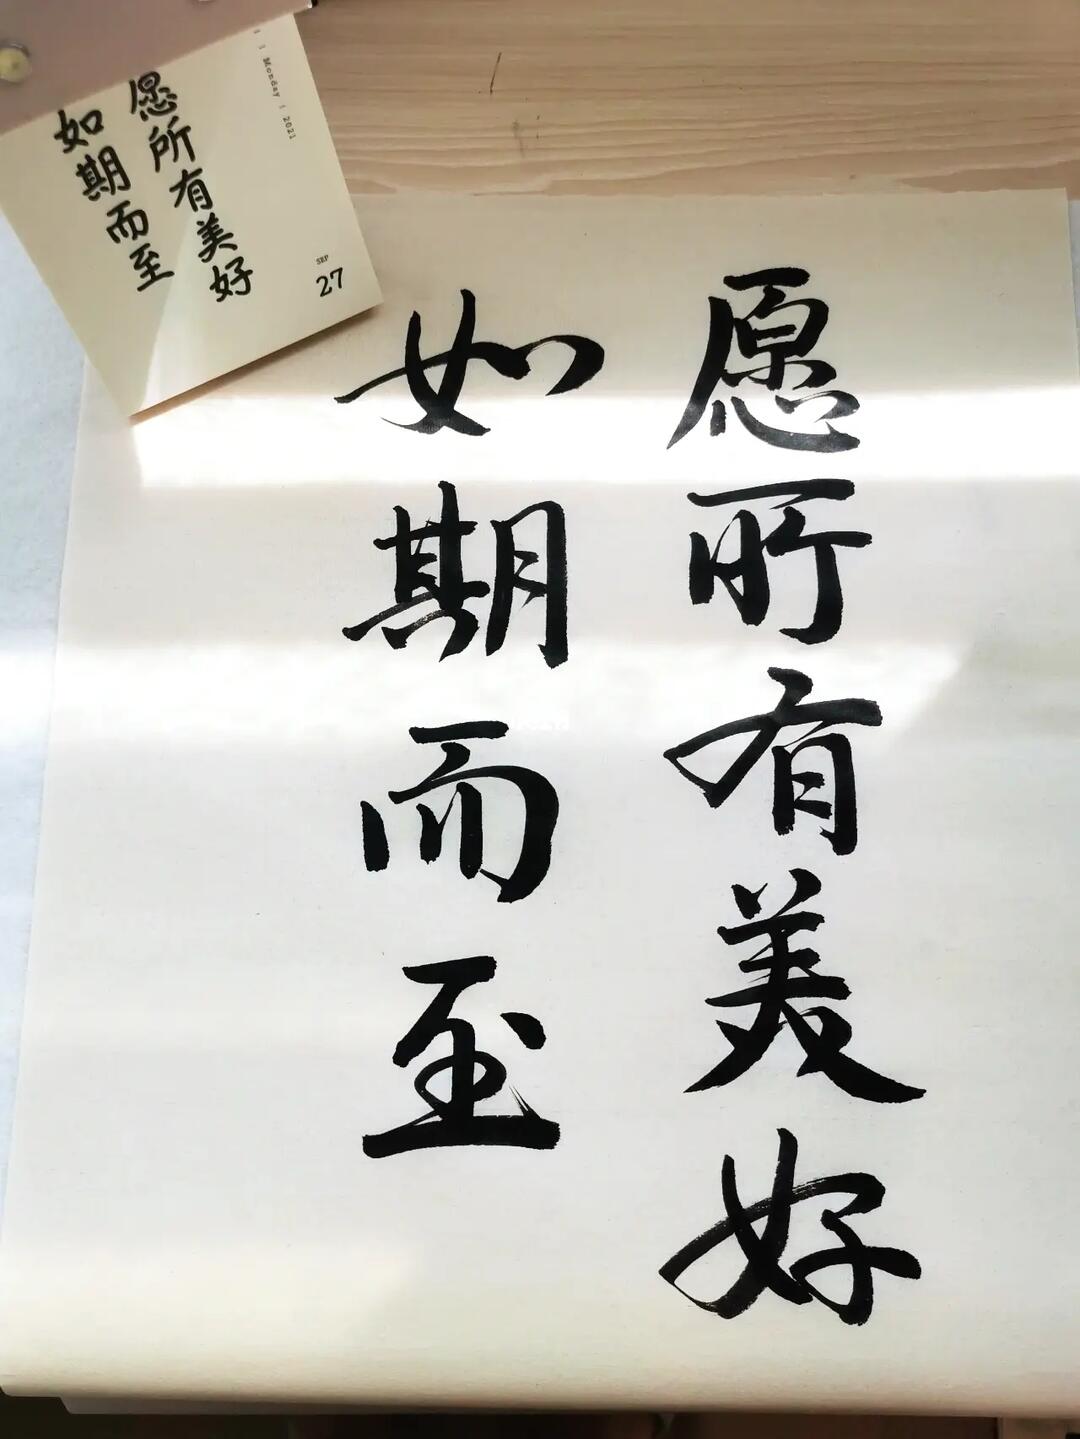 愿所有美好
如期而至
Monday | 2021
愿所有美好
如期而至
SEP
27